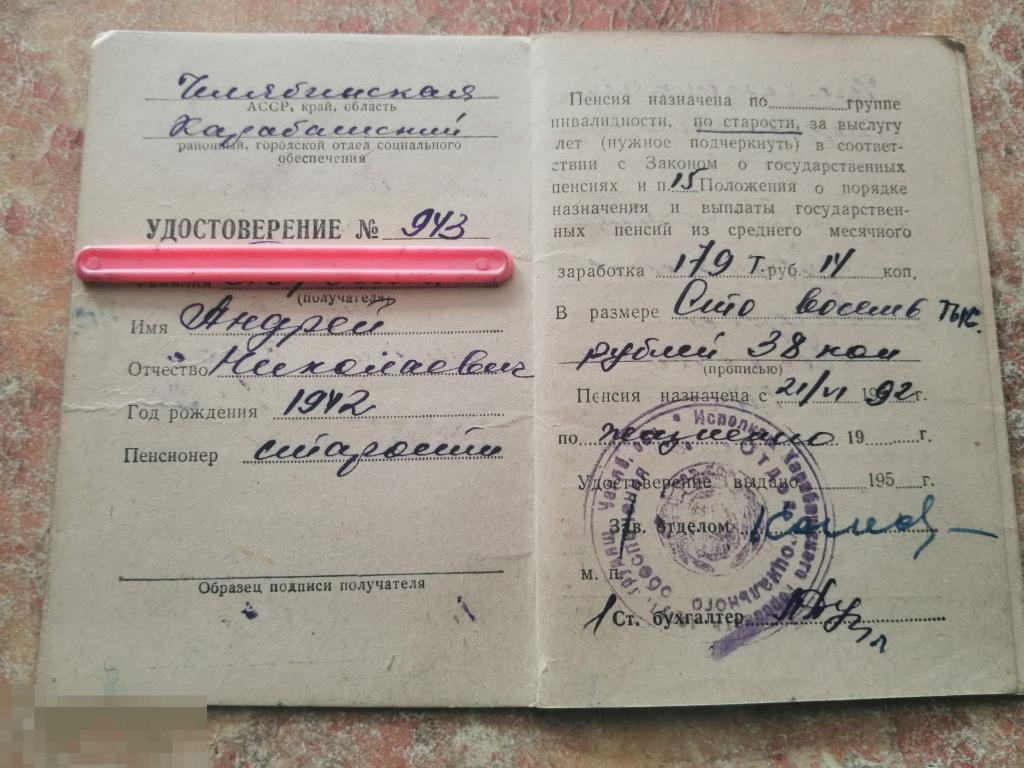 Челябинская
АССР, край, область
Карабашский
районный, городской отдел социального
обеспечения
УДОСТОВЕРЕНИЕ № 943
(получателя)
Имя Андрей
Отчество Николаевич
Год рождения 1942
Пенсионер старости
Образец подписи получателя
Пенсия назначена по группе
инвалидности, по старости, за выслугу
лет (нужное подчеркнуть) в соответ-
ствии с Законом о государственных
пенсиях и п. 15 Положения о порядке
назначения и выплаты государствен-
ных пенсий из среднего месячного
заработка 179 т. руб. 14 коп.
В размере Сто восемь тыс.
рублей 38 коп
(прописью)
Пенсия назначена с 21/VI 1992г.
по 19 г.
Удостоверение выдано 195 г.
Зав. отделом
м. п.
Ст. бухгалтер
Исполком Карабашского
Отдел социального обеспечения